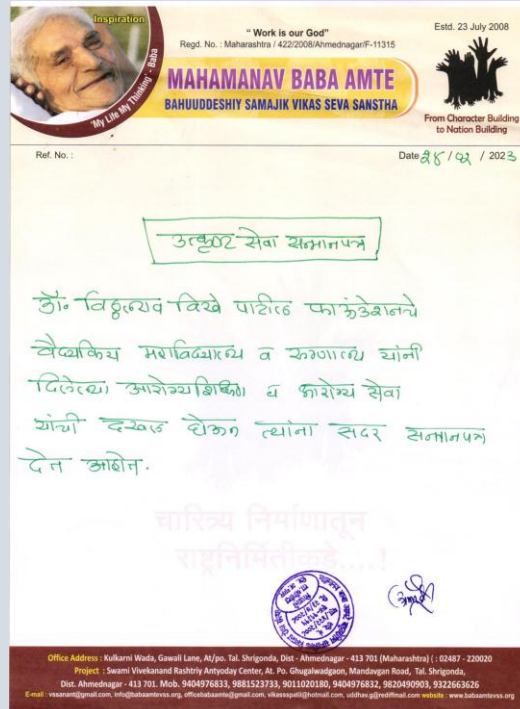 Inspiration
'My Life My Thinking' - Baba
" Work is our God"
Regd. No. : Maharashtra / 422/2008/Ahmednagar/F-11315
Estd. 23 July 2008
MAHAMANAV BABA AMTE
BAHUUDDESHIY SAMAJIK VIKAS SEVA SANSTHA
From Character Building
to Nation Building
Ref. No. :
Date / 2023
उत्कृष्ट सेवा सन्मानपत्र
डॉ. विठ्ठलराव विखे पाटील फाऊंडेशनचे
वैद्यकिय महाविद्यालय व रुग्णालय यांनी
दिलेल्या आरोग्यशिक्षण व आरोग्य सेवा
यांची दखल घेऊन त्यांना सदर सन्मानपत्र
देत आहोत.
चारित्र्य निर्माणातून
राष्ट्रनिर्मितीकडे....!
Office Address : Kulkarni Wada, Gawali Lane, At/po. Tal. Shrigonda, Dist - Ahmednagar - 413 701 (Maharashtra) ( : 02487 - 220020
Project : Swami Vivekanand Rashtriy Antyoday Center, At. Po. Ghugalwadgaon, Mandavgan Road, Tal. Shrigonda,
Dist. Ahmednagar - 413 701. Mob. 9404976833, 9881523733, 9011020180, 9404976832, 9820490903, 9322663626
E-mail : vssanant@gmail.com, info@babaamtevss.org, officebabaamte@gmail.com, vikasspatil@hotmail.com, uddhav.g@rediffmail.com website : www.babaamtevss.org